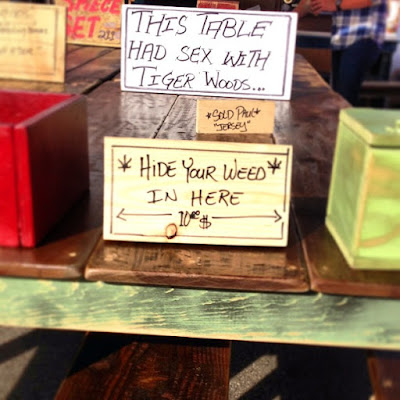 THIS TABLE
HAD SEX WITH
TIGER WOODS...
*SOLD PAUL*
"JERSEY"
* HIDE YOUR WEED *
IN HERE
10.00 $